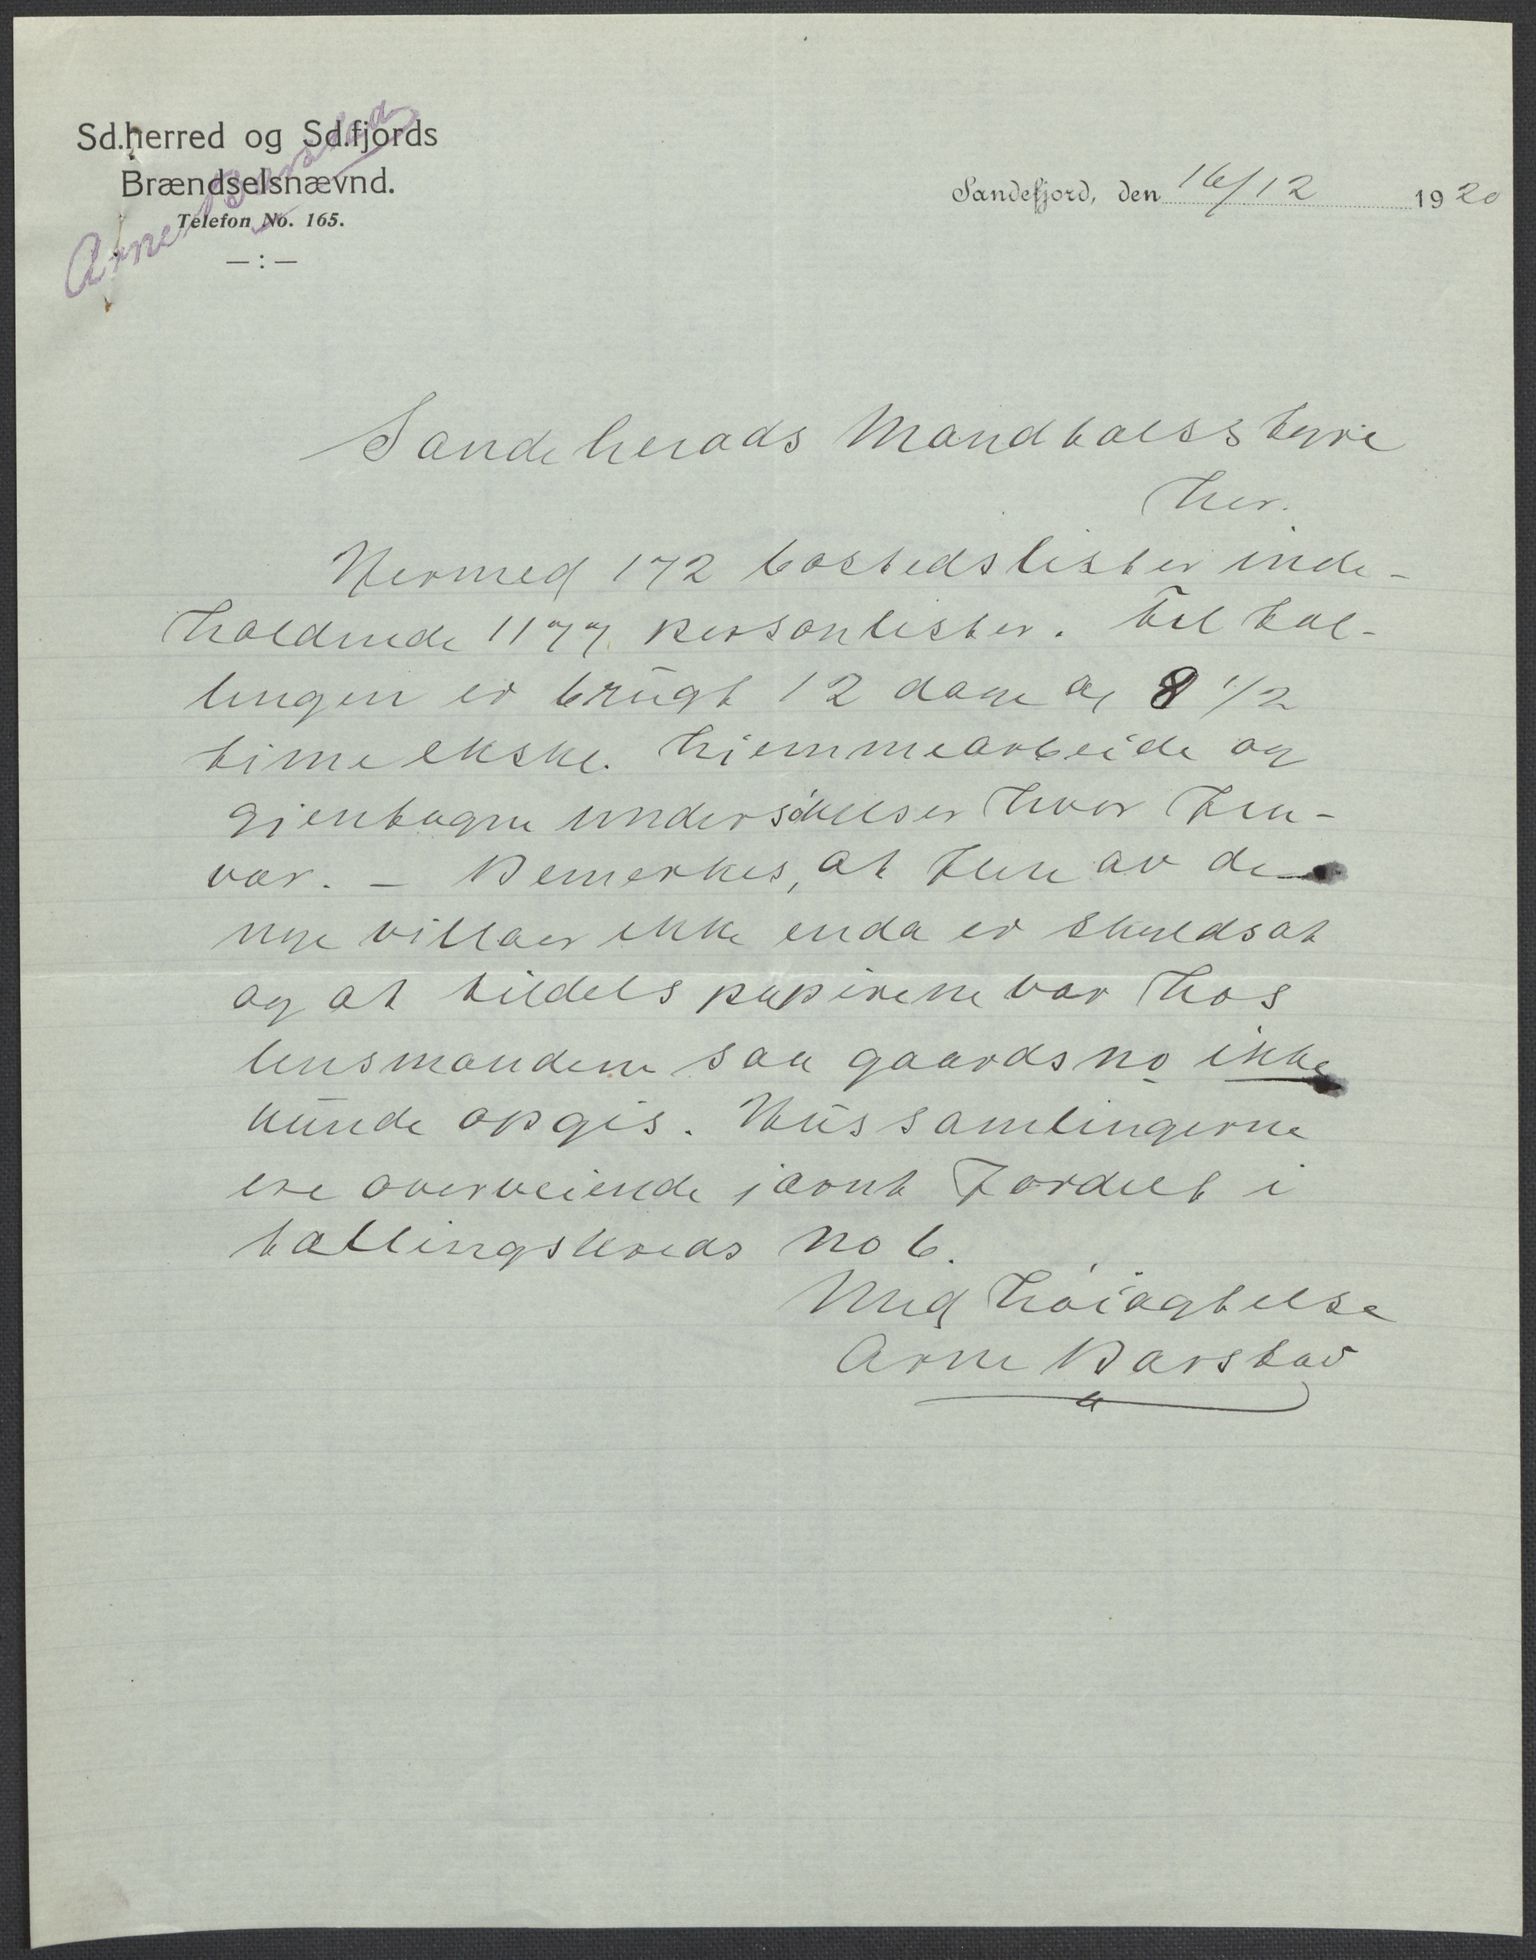 Sd.herred og Sd.fjords
Brændselsnævnd.
Telefon No. 165.
— : —
Arne Barstad
Sandefjord, den 16/12 1920
Sandeherads Mandtalsstyre
her.
Hermed 172 bostedslister inde-
holdende 1177 personlister. Til tæl-
lingen er brugt 12 dage og 8 1/2
time ekskl. hjemmearbeide og
gjentagne undersökelser hvor fra-
vær. – Bemerkes, at flere av de
nye villaer ikke enda er skyldsat
og at tildels papirene var hos
lensmanden saa gaardsno ikke
kunde opgis. Hussamlingerne
ere overveiende jævnt fordelt i
tællingskreds no 6.
Med höiagtelse
Arne Barstad